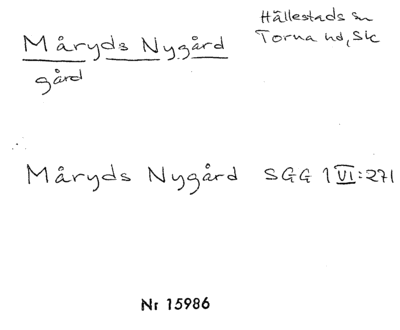 Hällestads sn
Torna hd, Sk
Måryds Nygård
gård
Måryds Nygård SGG 1 VI:271
Nr 15986